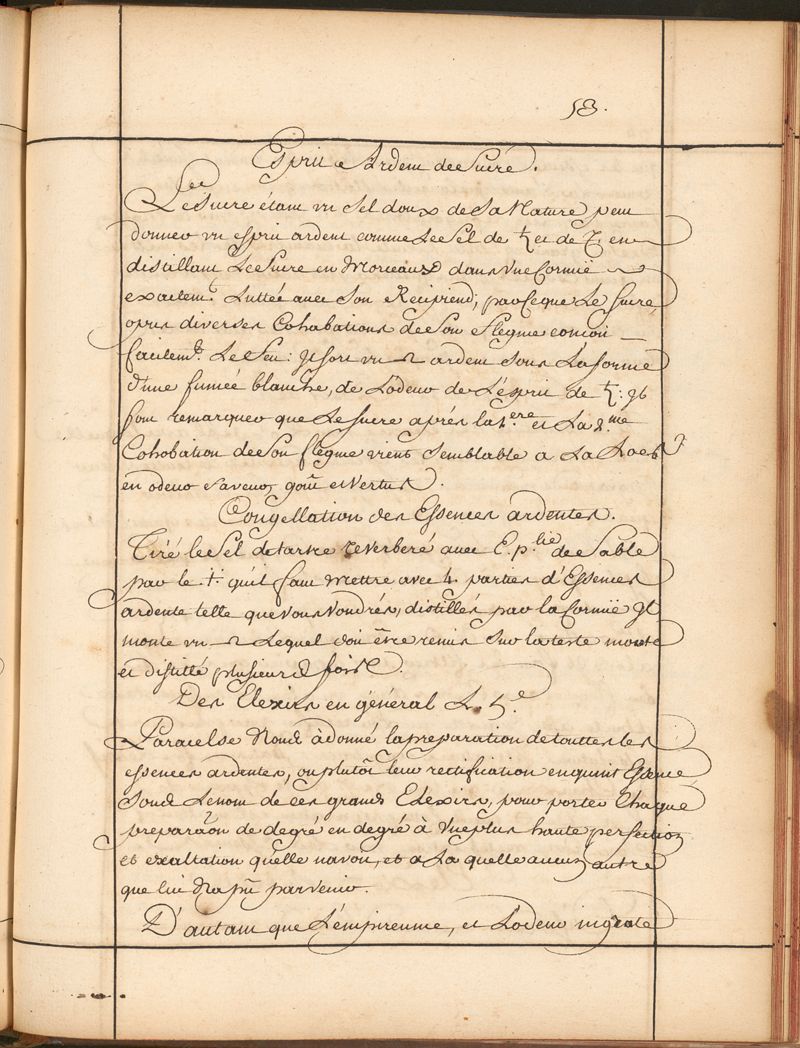 53.
Esprit Ardent de Sucre.
Le Sucre étant un Sel doux de Sa Nature peut
donner un esprit ardent comme Le Sel de ♄ et de ♃ en
distillant Le Sucre en Morceaux dans Une Cornüe
exactemt. Luttée avec Son Recipiend; parceque Le Sucre,
apres diverses Cohobations de Son flegme concoit
facilemt. Le feu: il sort un ardent Sous La forme
d'une fumée blanche, de L'odeur de L'esprit de ♄: il
faut remarquer que Le Sucre aprés la 1.ere et La 2.me
Cohobation de Son flegme vient Semblable a La
en odeur saveur, goût et Vertus.
Congellation des Essences ardentes.
Tiré le Sel de tartre reverberé avec E. p.tie de Sable
par le qu'il faut Mettre avec 4. parties d'Essences
ardente telle que Vous Voudrés, distillés par la Cornüe il
monte un Lequel doit être remis Sur la teste morte
et distillé plusieurs fois.
Des Elexirs en général L. 5.e
Paracelse Nous à donné la preparation de touttes les
essences ardentes, ou plutôt leur rectification en quint Essence
Sous Le nom de ces grands Elexirs, pour porter Chaque
preparâon de degré en degré à Une plus haute perfection
et exaltation quelle navoit, et a La quelle aucun autre
que lui Na pû parvenir.
D'autant que L'empireume, et L'odeur ingrate